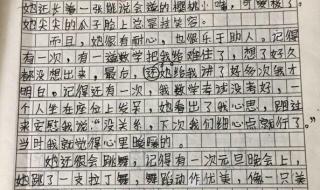 她还长着一张能说会道的樱桃小嘴，可爱极了。
她尖尖的瓜子脸上总是挂着笑容。
而且，她很有耐心，也很乐于助人。记得
有一次，有一道数学把我给难住了，想了好久
都没想出来，最后，还她给我讲了好多次我才
明白。记得还有一次，我数学考试没考好，一
个人坐在座位上发呆，她看出了我心思，跑过
来安慰我说："没关系，下次我们细心点就行了。"
当时我就觉得心里暖暖的。
她还很会跳舞，记得有一次元旦晚会上，
她跳了一支拉丁舞，舞蹈动作优美，像一只美